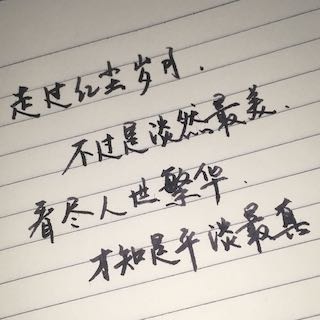 走过红尘岁月.
不过是淡然最美.
看尽人世繁华.
才知是平淡最真